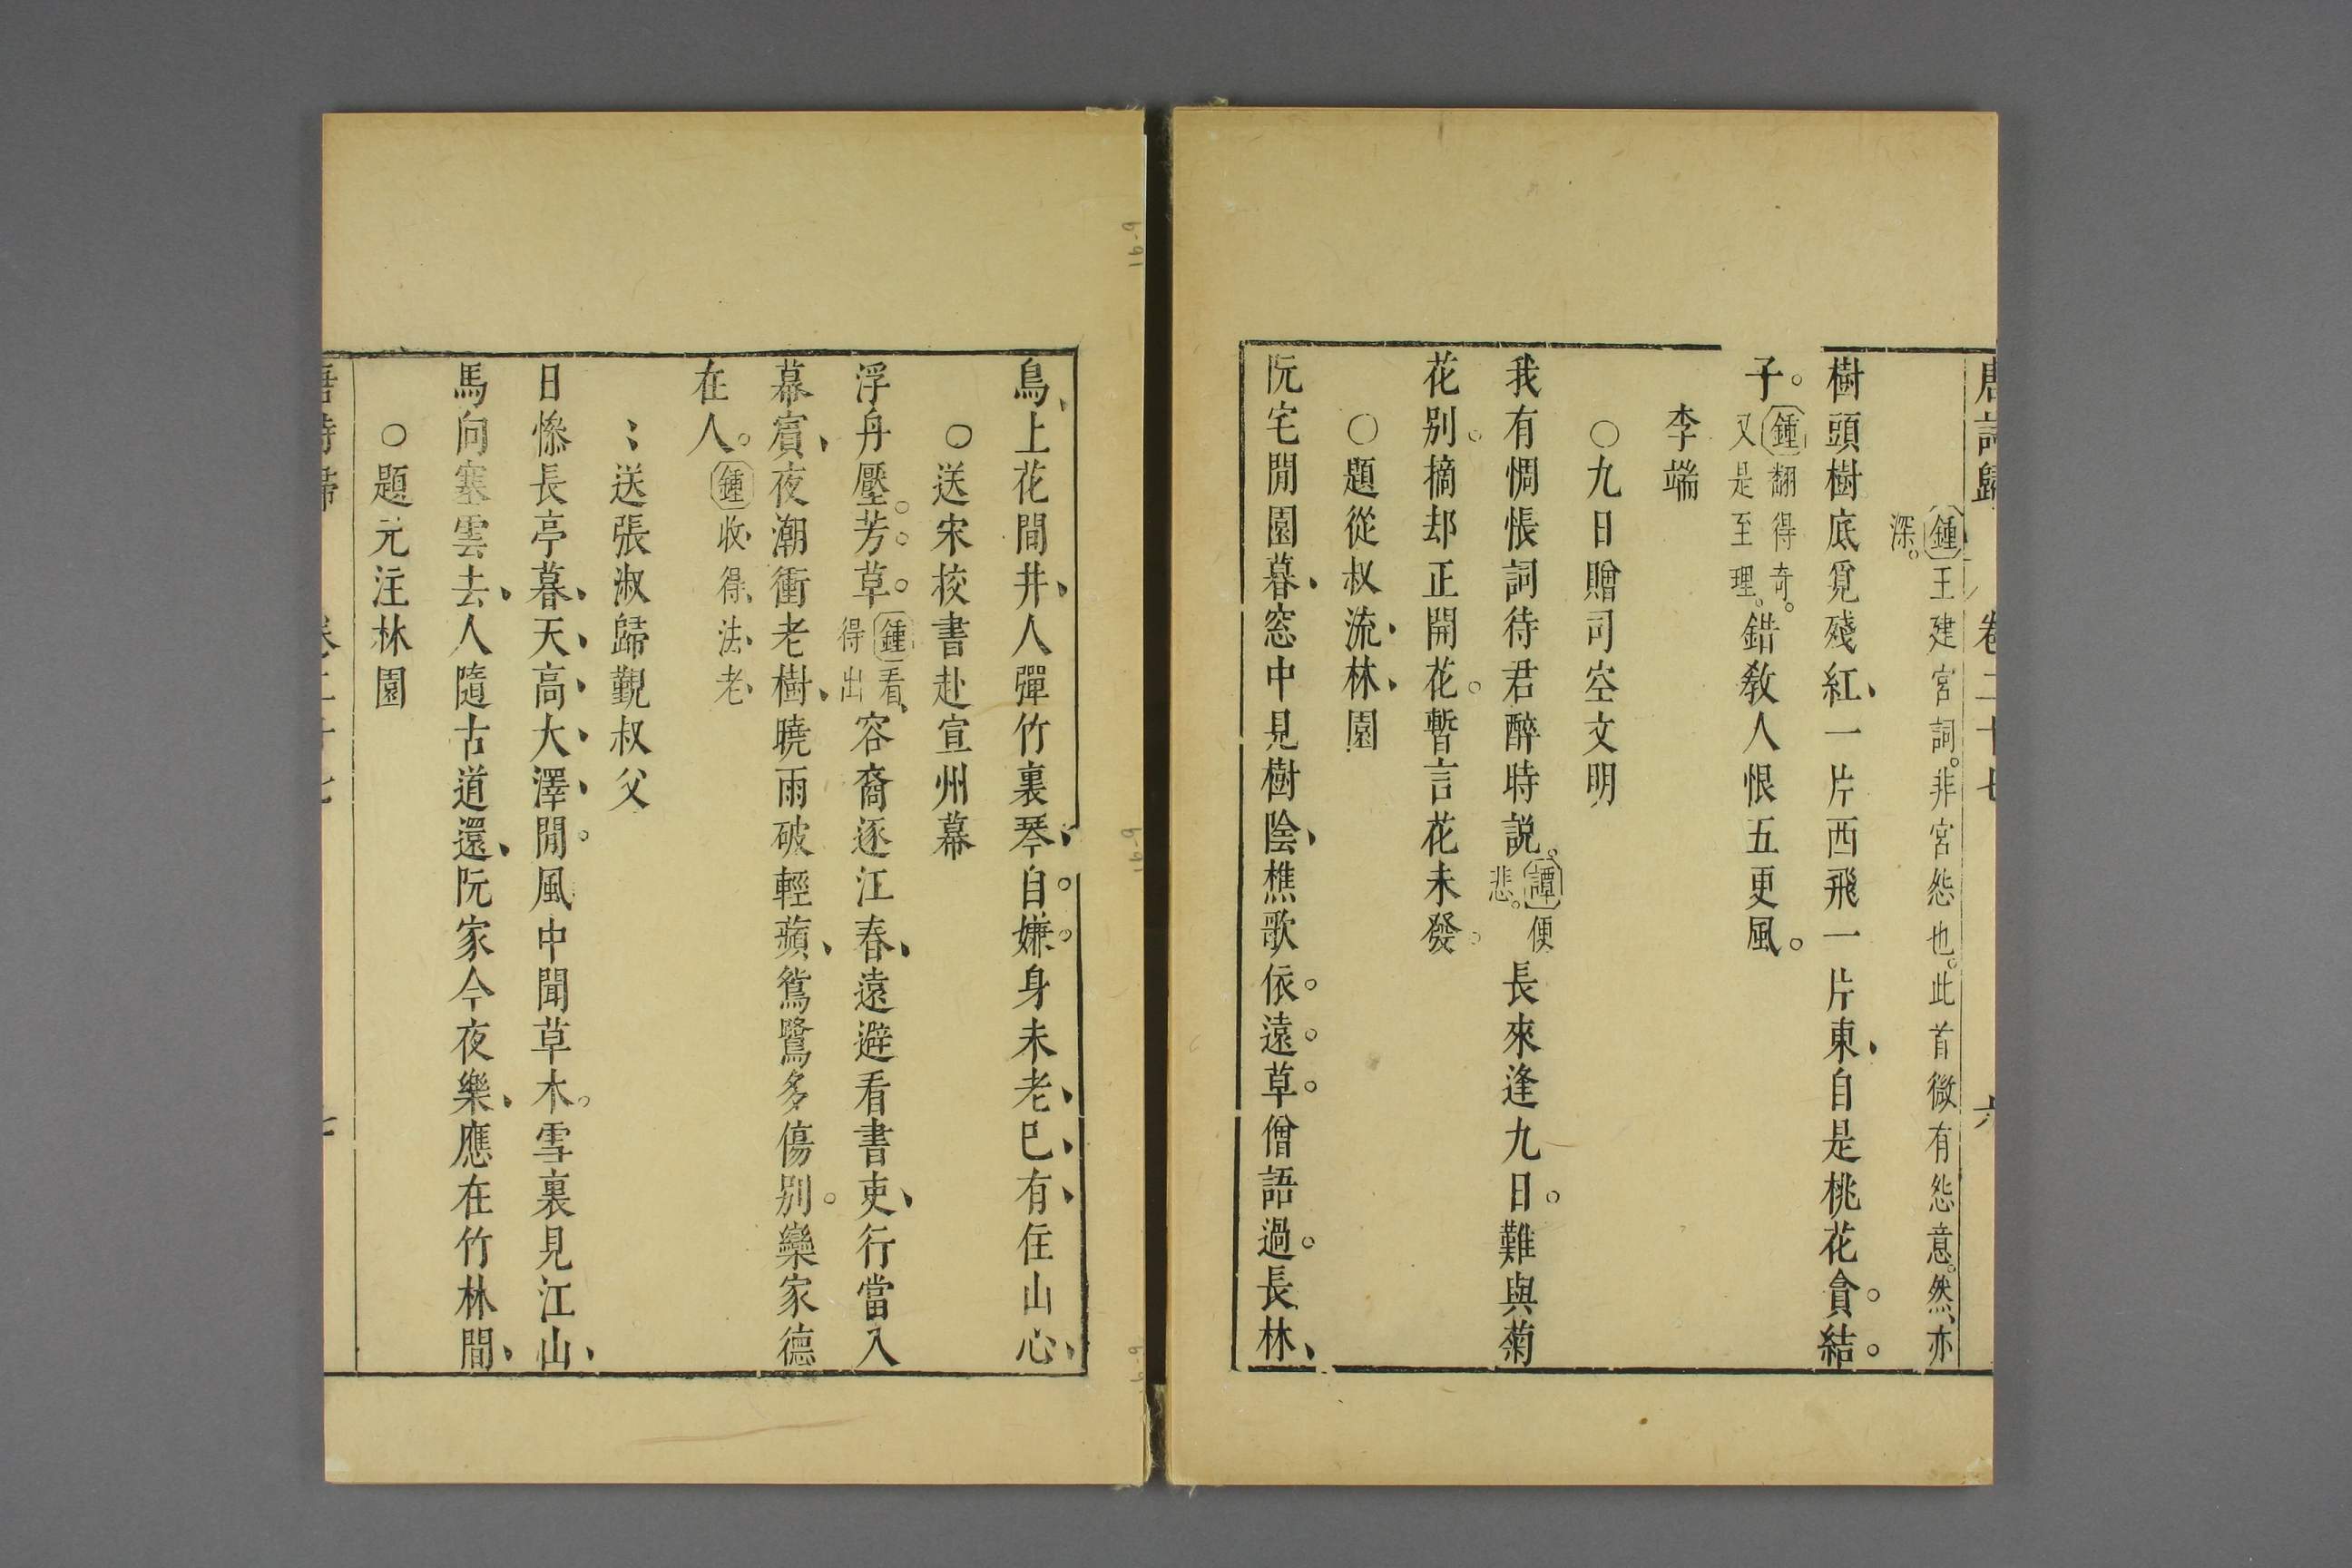 唐詩歸 卷二十七 六
鍾王建宮詞。非宮怨也。此首微有怨意。然、亦
深。
樹頭樹底覓殘紅、一片西飛一片東、自是桃花貪。結。
子。鍾翻得奇。又是至理。錯教人恨五更風。
李端
○九日贈司空文明
我有惆悵詞待君醉時說。譚便悲。長來逢九日。難與菊
花別。摘却正開花。暫言花未發。
○題從叔流、林、園
阮宅閒園暮、窓中見樹陰、樵歌依。遠。草。僧語過。長林、
鳥、上花間井、人彈竹裏琴、自。嫌。身未老、巳、有、住山心、
○送宋校書赴宣州幕
浮舟壓。芳。草。鍾看、得出容裔逐江春、遠避看書吏、行當入
幕賓、夜潮衝老樹、曉雨破輕蘋、鴛鷺多傷別。欒家德
在人。鍾收、得、法、老、
送張淑歸覲叔父
日慘長亭暮、天、高、大、澤、閒。風中聞草木。雪裏見江山、
馬向塞雲去、人隨古道還、阮家今夜樂、應在竹林間、
○題元注林園
唐詩歸 卷二十七 七